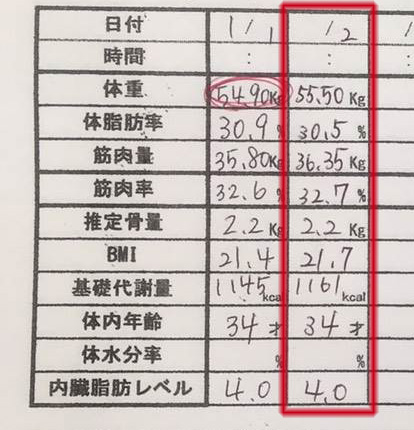 日付 1/1 /2 /
時間 : : :
体重 54.90Kg 55.50Kg
体脂肪率 30.9% 30.5%
筋肉量 35.80Kg 36.35Kg
筋肉率 32.6% 32.7%
推定骨量 2.2Kg 2.2Kg
BMI 21.4 21.7
基礎代謝量 1145kcal 1161kcal
体内年齢 34才 34才
体水分率 % %
内臓脂肪レベル 4.0 4.0